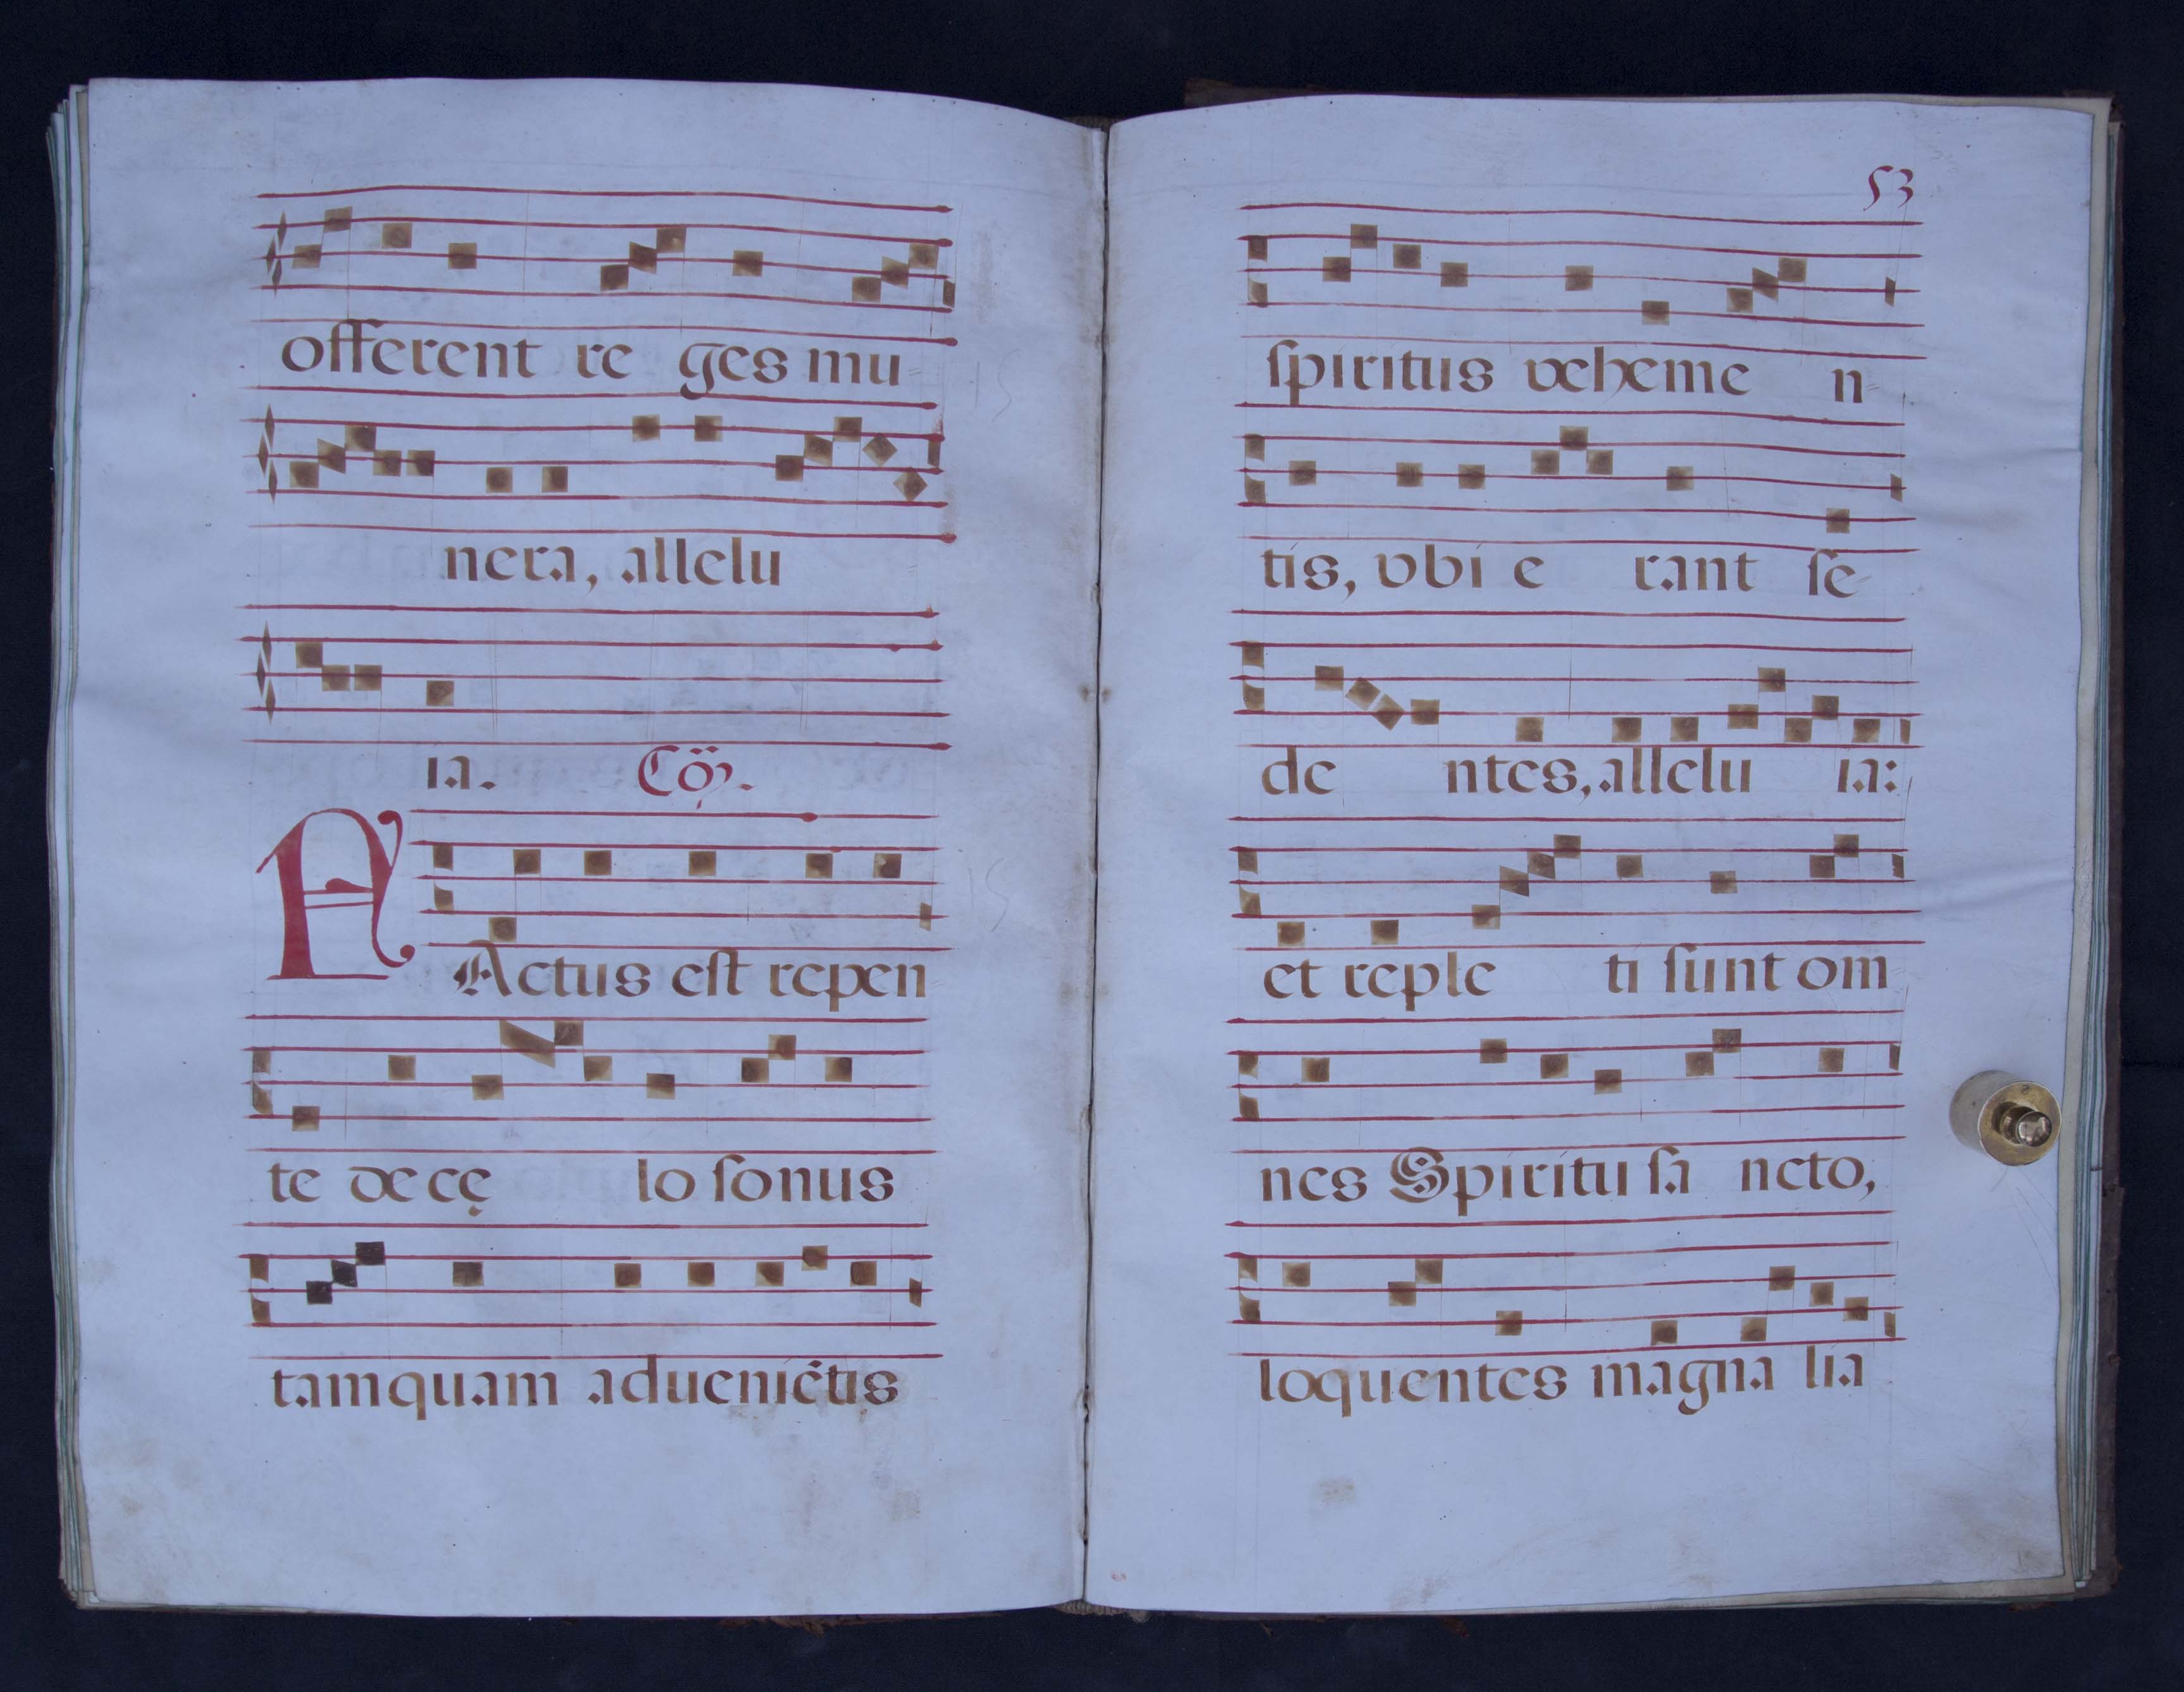 offerent re ges mu
nera, allelu
ia. Cõ.
F Actus est repen
te de cę lo sonus
tamquam adueniẽtis
53
spiritus veheme n
tis, vbi e rant se
de ntes, allelu ia:
et reple ti sunt om
nes Spiritu sa ncto,
loquentes magna lia